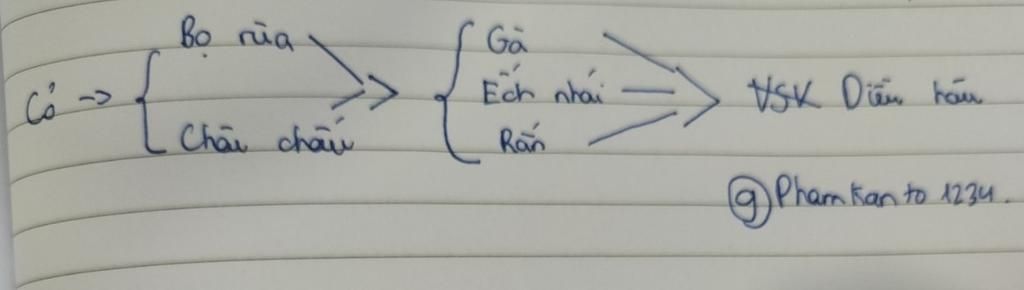 Bọ rùa
Cỏ → Châu chấu
Gà
Ếch nhái
Rắn
VSK Diều hâu
@Phamkanto 1234.